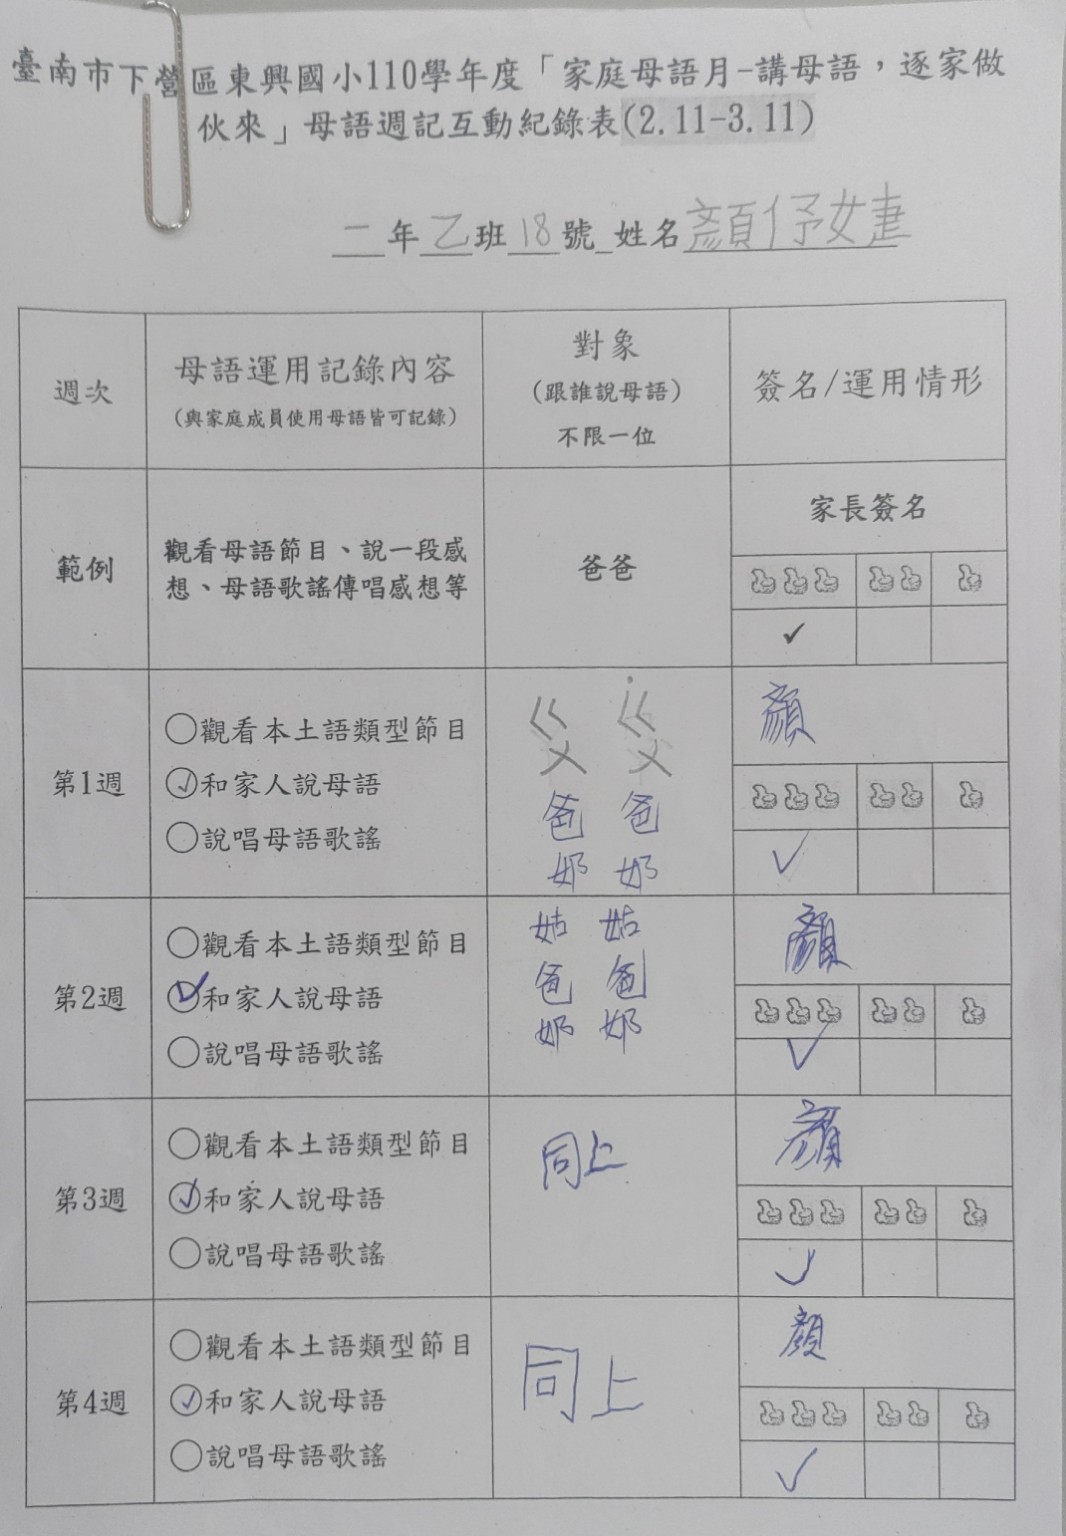 臺南市下營區東興國小110學年度「家庭母語月-講母語，逐家做
伙來」母語週記互動紀錄表(2.11-3.11)
二年乙班18號 姓名顏伃婕
週次
母語運用記錄內容
(與家庭成員使用母語皆可記錄)
對象
(跟誰說母語)
不限一位
簽名/運用情形
範例
觀看母語節目、說一段感
想、母語歌謠傳唱感想等
爸爸
家長簽名
✓
第1週
○觀看本土語類型節目
✓和家人說母語
○說唱母語歌謠
ㄍㄨ ˙ㄍㄨ
爸爸
奶奶
顏
✓
第2週
○觀看本土語類型節目
✓和家人說母語
○說唱母語歌謠
姑姑
爸爸
奶奶
顏
✓
第3週
○觀看本土語類型節目
✓和家人說母語
○說唱母語歌謠
同上
顏
✓
第4週
○觀看本土語類型節目
✓和家人說母語
○說唱母語歌謠
同上
顏
✓